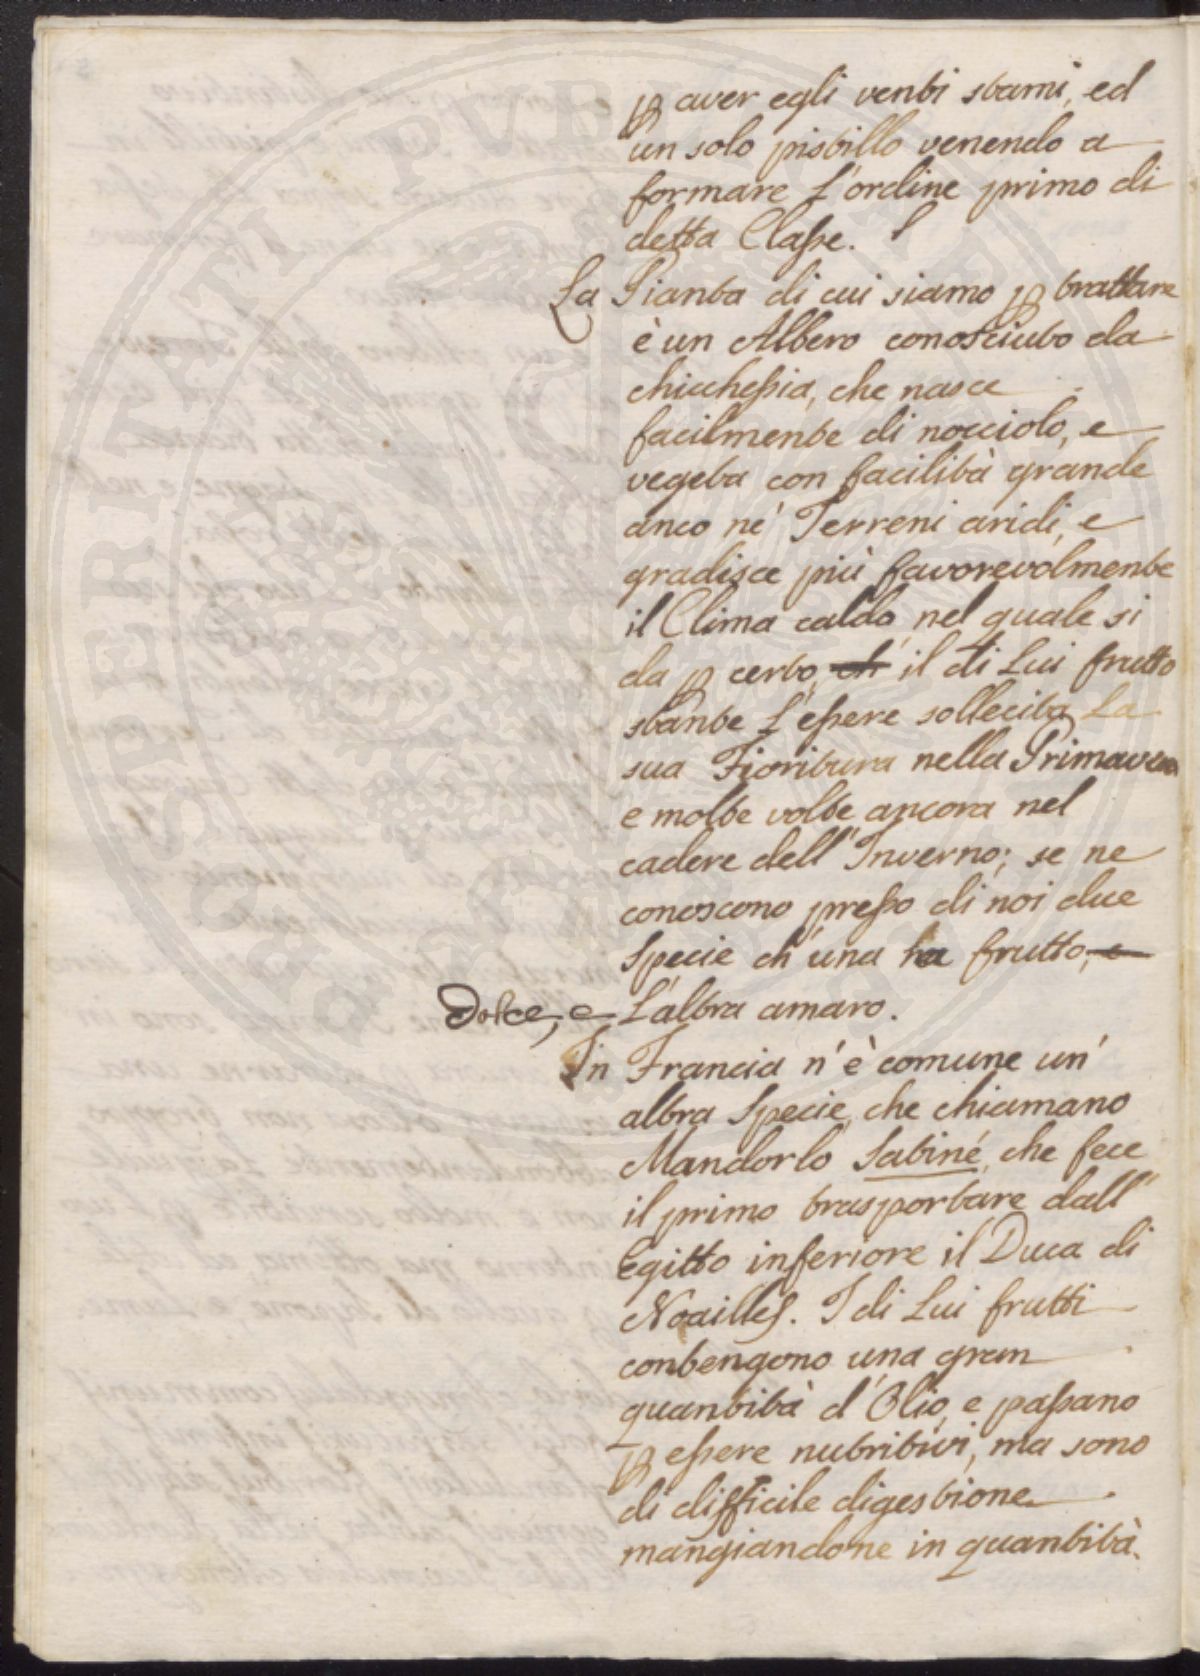 ꝑ aver egli venti stami, ed
un solo pistillo venendo a
formare l'ordine primo di
detta Classe.
La Pianta di cui siamo ꝑ trattare
è un Albero conosciuto da
chicchessia, che nasce
facilmente di nocciolo, e
vegeta con facilità grande
anco ne' Terreni aridi, e
gradisce più favorevolmente
il Clima caldo, nel quale si
da ꝑ certo, ch' il di Lui frutto
stante l'essere sollecita La
sua Fioritura nella Primavera
e molte volte ancora nel
cadere dell' Inverno; se ne
conoscono presso di noi due
Specie ch' una ha frutto, e
Dolce, e L'altra amaro.
In Francia n' è comune un'
altra Specie, che chiamano
Mandorlo Satiné, che fece
il primo trasportare dall'
Egitto inferiore il Duca di
Noailles. I di Lui frutti
contengono una gran
quantità d'Olio, e passano
ꝑ essere nutritivi, ma sono
di difficile digestione
mangiandone in quantità.
PROSPERITATI PVBLICAE